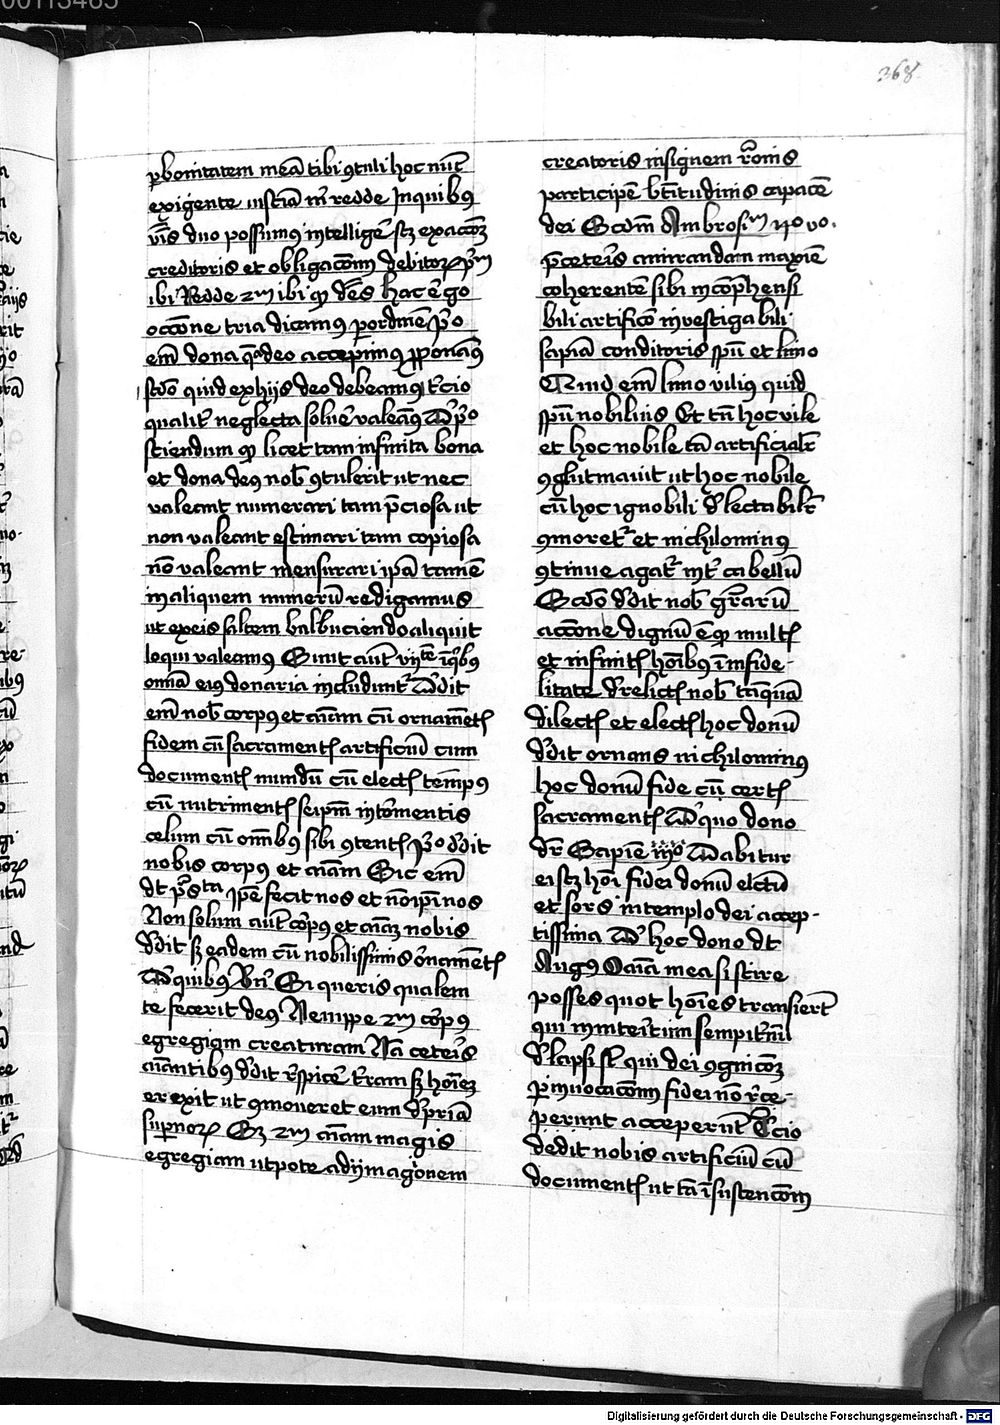 368
ꝑ bonitatem meā tibi ꝯtuli hoc nūc
exigente iusticiā m̄ redde In quibꝫ
v̄bis duo possumꝰ intellige᷑ scꝫ exaccōꝫ
creditoris et obligaccōnē debitoꝝ p̄m
ibi Redde 2m ibi qđ dēs hac ē go
occōne tria dicamꝰ ꝑ ordinē p̄o
em̄ dona q̄ a deo accepimꝰ ꝓponamꝰ
scdō quid ex hijs deo debeamꝰ t̄cio
qualit᷑ neglecta solue᷑ valeamꝰ De p̄o
sciendum qđ licet tam infinita bona
et dona deꝰ nob̄ ꝯtulerit ut nec
valeant numerari tam p̄ciosa ut
non valeant estimari tam copiosa
nō valeant mensurari ip̄a tamē
in aliquem numerū redigamus
ut ex eis saltem balbuciendo aliquit
loqui valeamꝰ Sunt aūt vijtē ī qꝫbꝰ
om̄ia eiꝰ donaria includunt᷑ Dedit
em̄ nob̄ corpꝰ et aīam cū ornamētꝭ
fidem cū sacramentꝭ artificiū cum
documentꝭ mundū cū electꝭ tēmpꝰ
cū nutrimentꝭ seip̄m in tormentis
celum cū om̄ibꝰ sibi ꝯtentꝭ p̄o dedit
nobis corpꝰ et aīam Sic em̄
dt p̄sta ip̄e fecit nos et nō ip̄i nos
Non solum aūt corpꝰ et aīaꝫ nobis
dedit sꝫ eadem cū nobilissimis ornamētꝭ
De quibꝰ Ber̄ Si queris qualem
te fecerit deꝰ Nempe 2m corpꝰ
egregiam creaturam Nā ceteris
aīantibꝰ dedit respice᷑ terram sꝫ hoīeꝫ
erexit ut ꝯmoueret eum de pr̄ia
supernoꝝ Sꝫ 2m aīam magis
egregiam utpote ad ijmagīonem
creatoris insignem rōnis
participē btītudinis capacē
dei Scdm̄ Ambrosiū no vo.
p̄ ceteris amirandam maxīe
coherentē sibi incōp̄hensi
bili artificō investigabili
sapīa conditoris sp̄m et limo
Quid em̄ limo vilius quid
sp̄u nobilius Et tn̄ hoc vile
et hoc nobile tā artificialit᷑
ꝯglutinauit ut hoc nobile
cū hoc ignobili delectabilit᷑
ꝯmoret᷑ et nichilominꝰ
ꝯtinue agat᷑ int᷑ ea bellū
Scdō dedit nob̄ gr̄arū
accōne dignū ē qđ multꝭ
et infinitꝭ hoībꝰ ī infide-
litate derelictꝭ nob̄ tāquā
dilectꝭ et electꝭ hoc donū
dedit ornans nichilominꝰ
hoc donū fide cū certꝭ
sacramentꝭ De quo dono
dr̄ Sapīe iijo Dabitur
ei scꝫ hoī fidei donū elctū
et sors in templo dei accep-
tissima De hoc dono dt
Augꝰ O aīa mea si scire
posses quot hoīes transiert
qui in inteītum sempit᷑nū
delapsi sūt qui dei ꝯgnicōꝫ
ꝑ invocacōnē fidei nō r̄ce-
perunt acceper̄t Tcio
dedit nobis artificiū cū
documentꝭ ut tā ī sustencōm
Digitalisierung gefördert durch die Deutsche Forschungsgemeinschaft - DFG